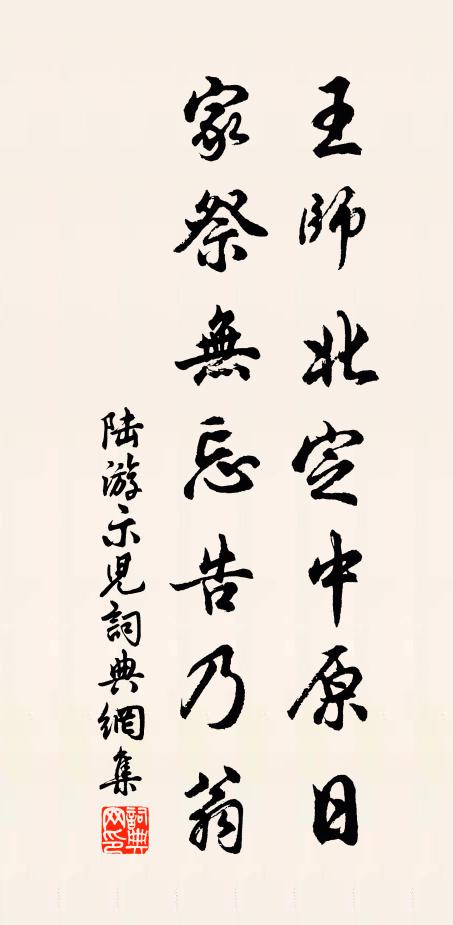 王師北定中原日
家祭無忘告乃翁
陆游示児詞典網集
詞典網印